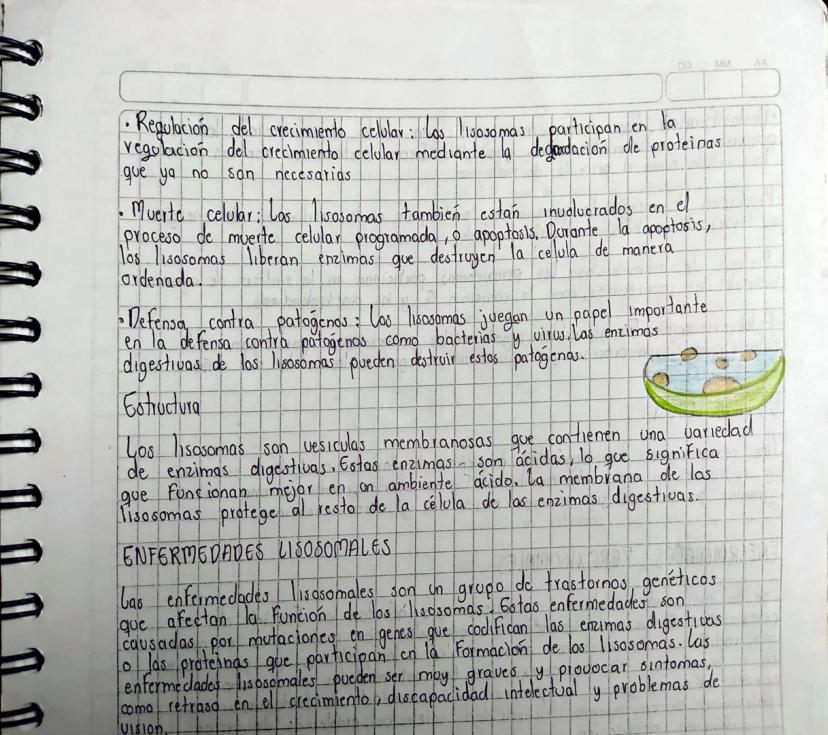 DD MM AA
• Regulación del crecimiento celular: Los lisosomas participan en la
regulación del crecimiento celular mediante la degradación de proteinas
que ya no son necesarias
• Muerte celular; Los lisosomas tambień estań involucrados en el
proceso de muerte celular programada, o apoptosis. Durante la apoptosis,
los lisosomas liberan enzimas que destruyen la celula de manera
ordenada.
• Defensa contra patógenos: Los lisosomas juegan un papel importante
en la defensa contra patógenos como bacterias y virus. Las enzimas
digestivas de los lisosomas pueden destruir estos patógenos.
Estructura
Los lisosomas son vesiculas membranosas que contienen una variedad
de enzimas digestivas. Estas enzimas son ácidas, lo que significa
que funcionan mejor en un ambiente ácido. La membrana de los
lisosomas protege al resto de la célula de las enzimas digestivas.
ENFERMEDADES LISOSOMALES
Las enfermedades lisosomales son un grupo de trastornos genéticos
que afectan la función de los lisosomas. Estas enfermedades son
causadas por mutaciones en genes que codifican las enzimas digestivas
o las proteínas que participan en la formación de los lisosomas. Las
enfermedades lisosomales pueden ser muy graves y provocar sintomas,
como retraso en el crecimiento, discapacidad intelectual y problemas de
visión.